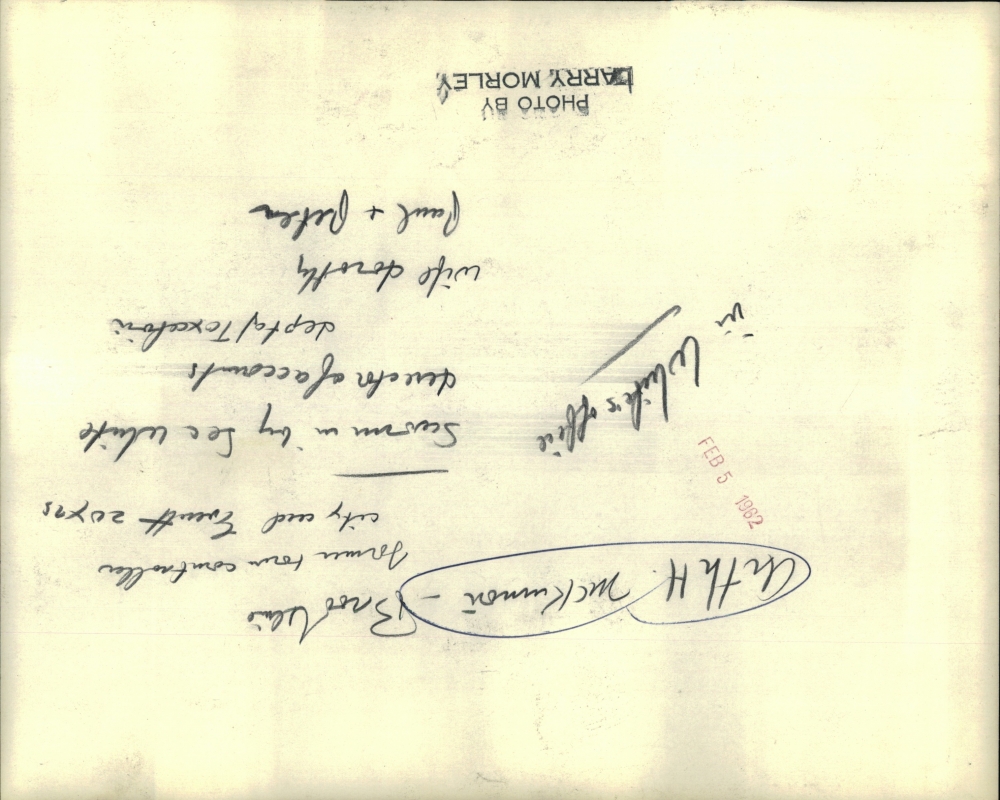 Arth H. McKinnon - Brookline
former town controller
city aud Everett 20 yrs
Sworn in by Sec White
director of accounts
dept of Taxation
wife dorothy
Paul + Peter
in White's office
FEB 5 1962
PHOTO BY
LARRY MORLEY